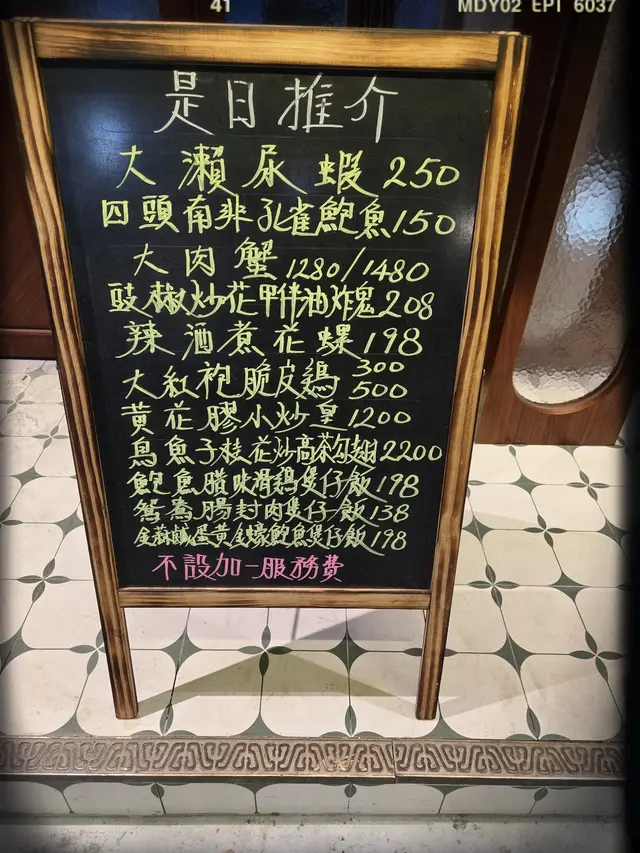 41
MDY02 EPI 6037
是日推介
大瀨尿蝦250
四頭南非孔雀鮑魚150
大肉蟹1280/1480
豉椒炒花甲伴油炸鬼208
辣酒煮花螺198
大紅袍脆皮鷄300
500
黄花膠小炒皇1200
烏魚子桂花炒高茶勾翅2200
鮑魚臘味滑鷄煲仔飯198
鴛鴦腸封肉煲仔飯138
金蒜鹹蛋黄金蠔鮑魚煲仔飯198
不設加一服務費